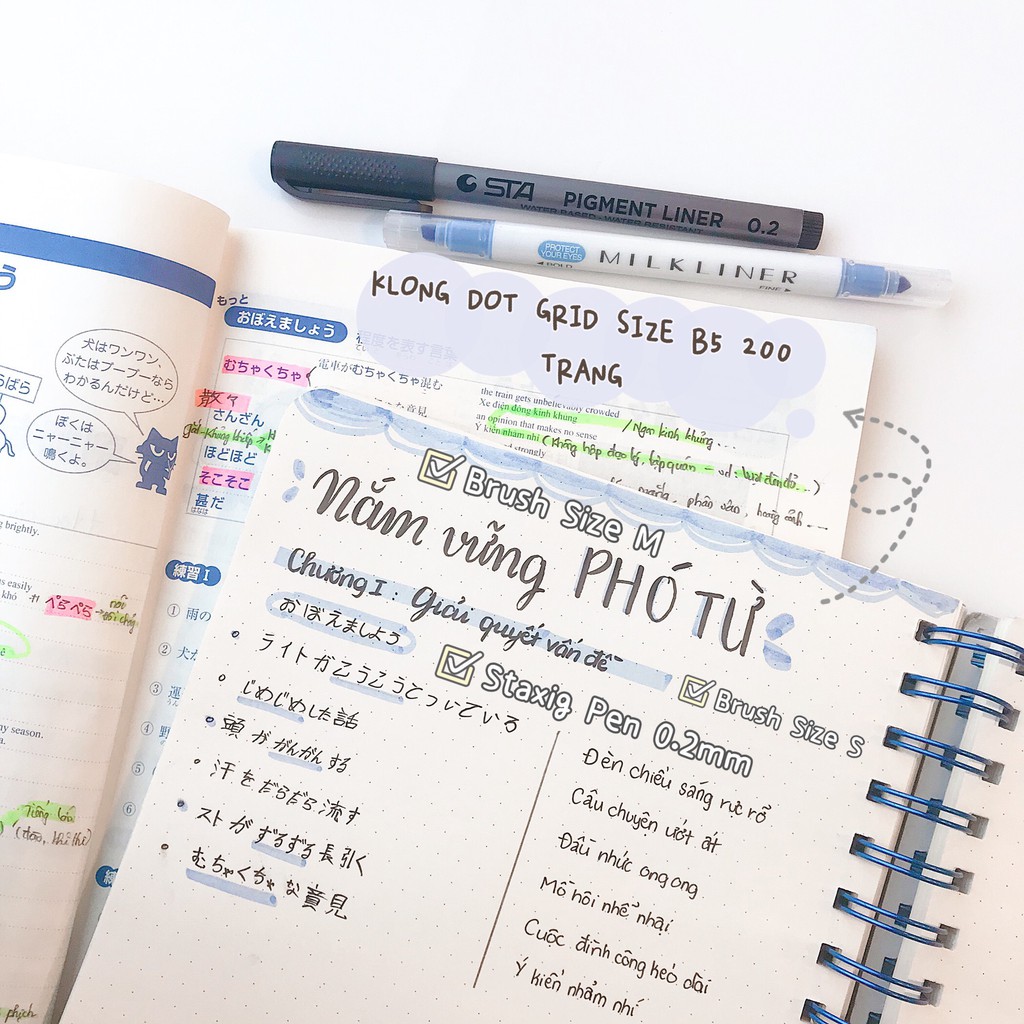 STA PIGMENT LINER 0.2
WATER BASED · WATER RESISTANT
PROTECT YOUR EYES
MILKLINER
BOLD
FINE
KLONG DOT GRID SIZE B5 200
TRANG
犬はワンワン、
ぶたはブーブーなら
わかるんだけど…
ぼくは
ニャーニャー
鳴くよ。
もっと
おぼえましょう
程度を表す言葉
むちゃくちゃ
電車がむちゃくちゃ混む
the train gets unbelievably crowded
Xe điện đông kinh khủng
/ Ngan kinh khủng...
an opinion that makes no sense
Ý kiến nhảm nhí
散々
さんざん
ほどほど
そこそこ
甚だ
はなは
練習 I
① 雨の
②
③
④
⑤
⑥
brightly.
easily
khó
ぺらぺら
ny season.
Brush Size M
Nắm vững PHÓ TỪ
Chương I : Giải quyết vấn đề
おぼえましよう
Brush Size S
Staxig Pen 0.2mm
ライトがこうこうとついている
じめじめした話
頭ががんがんする
汗をだらだら流す
ストがずるずる長引く
むちゃくちゃな意見
Đèn chiếu sáng rực rỡ
Câu chuyện ướt át
Đầu nhức ong ong
Mồ hôi nhễ nhại
Cuộc đình công kéo dài
Ý kiến nhảm nhí